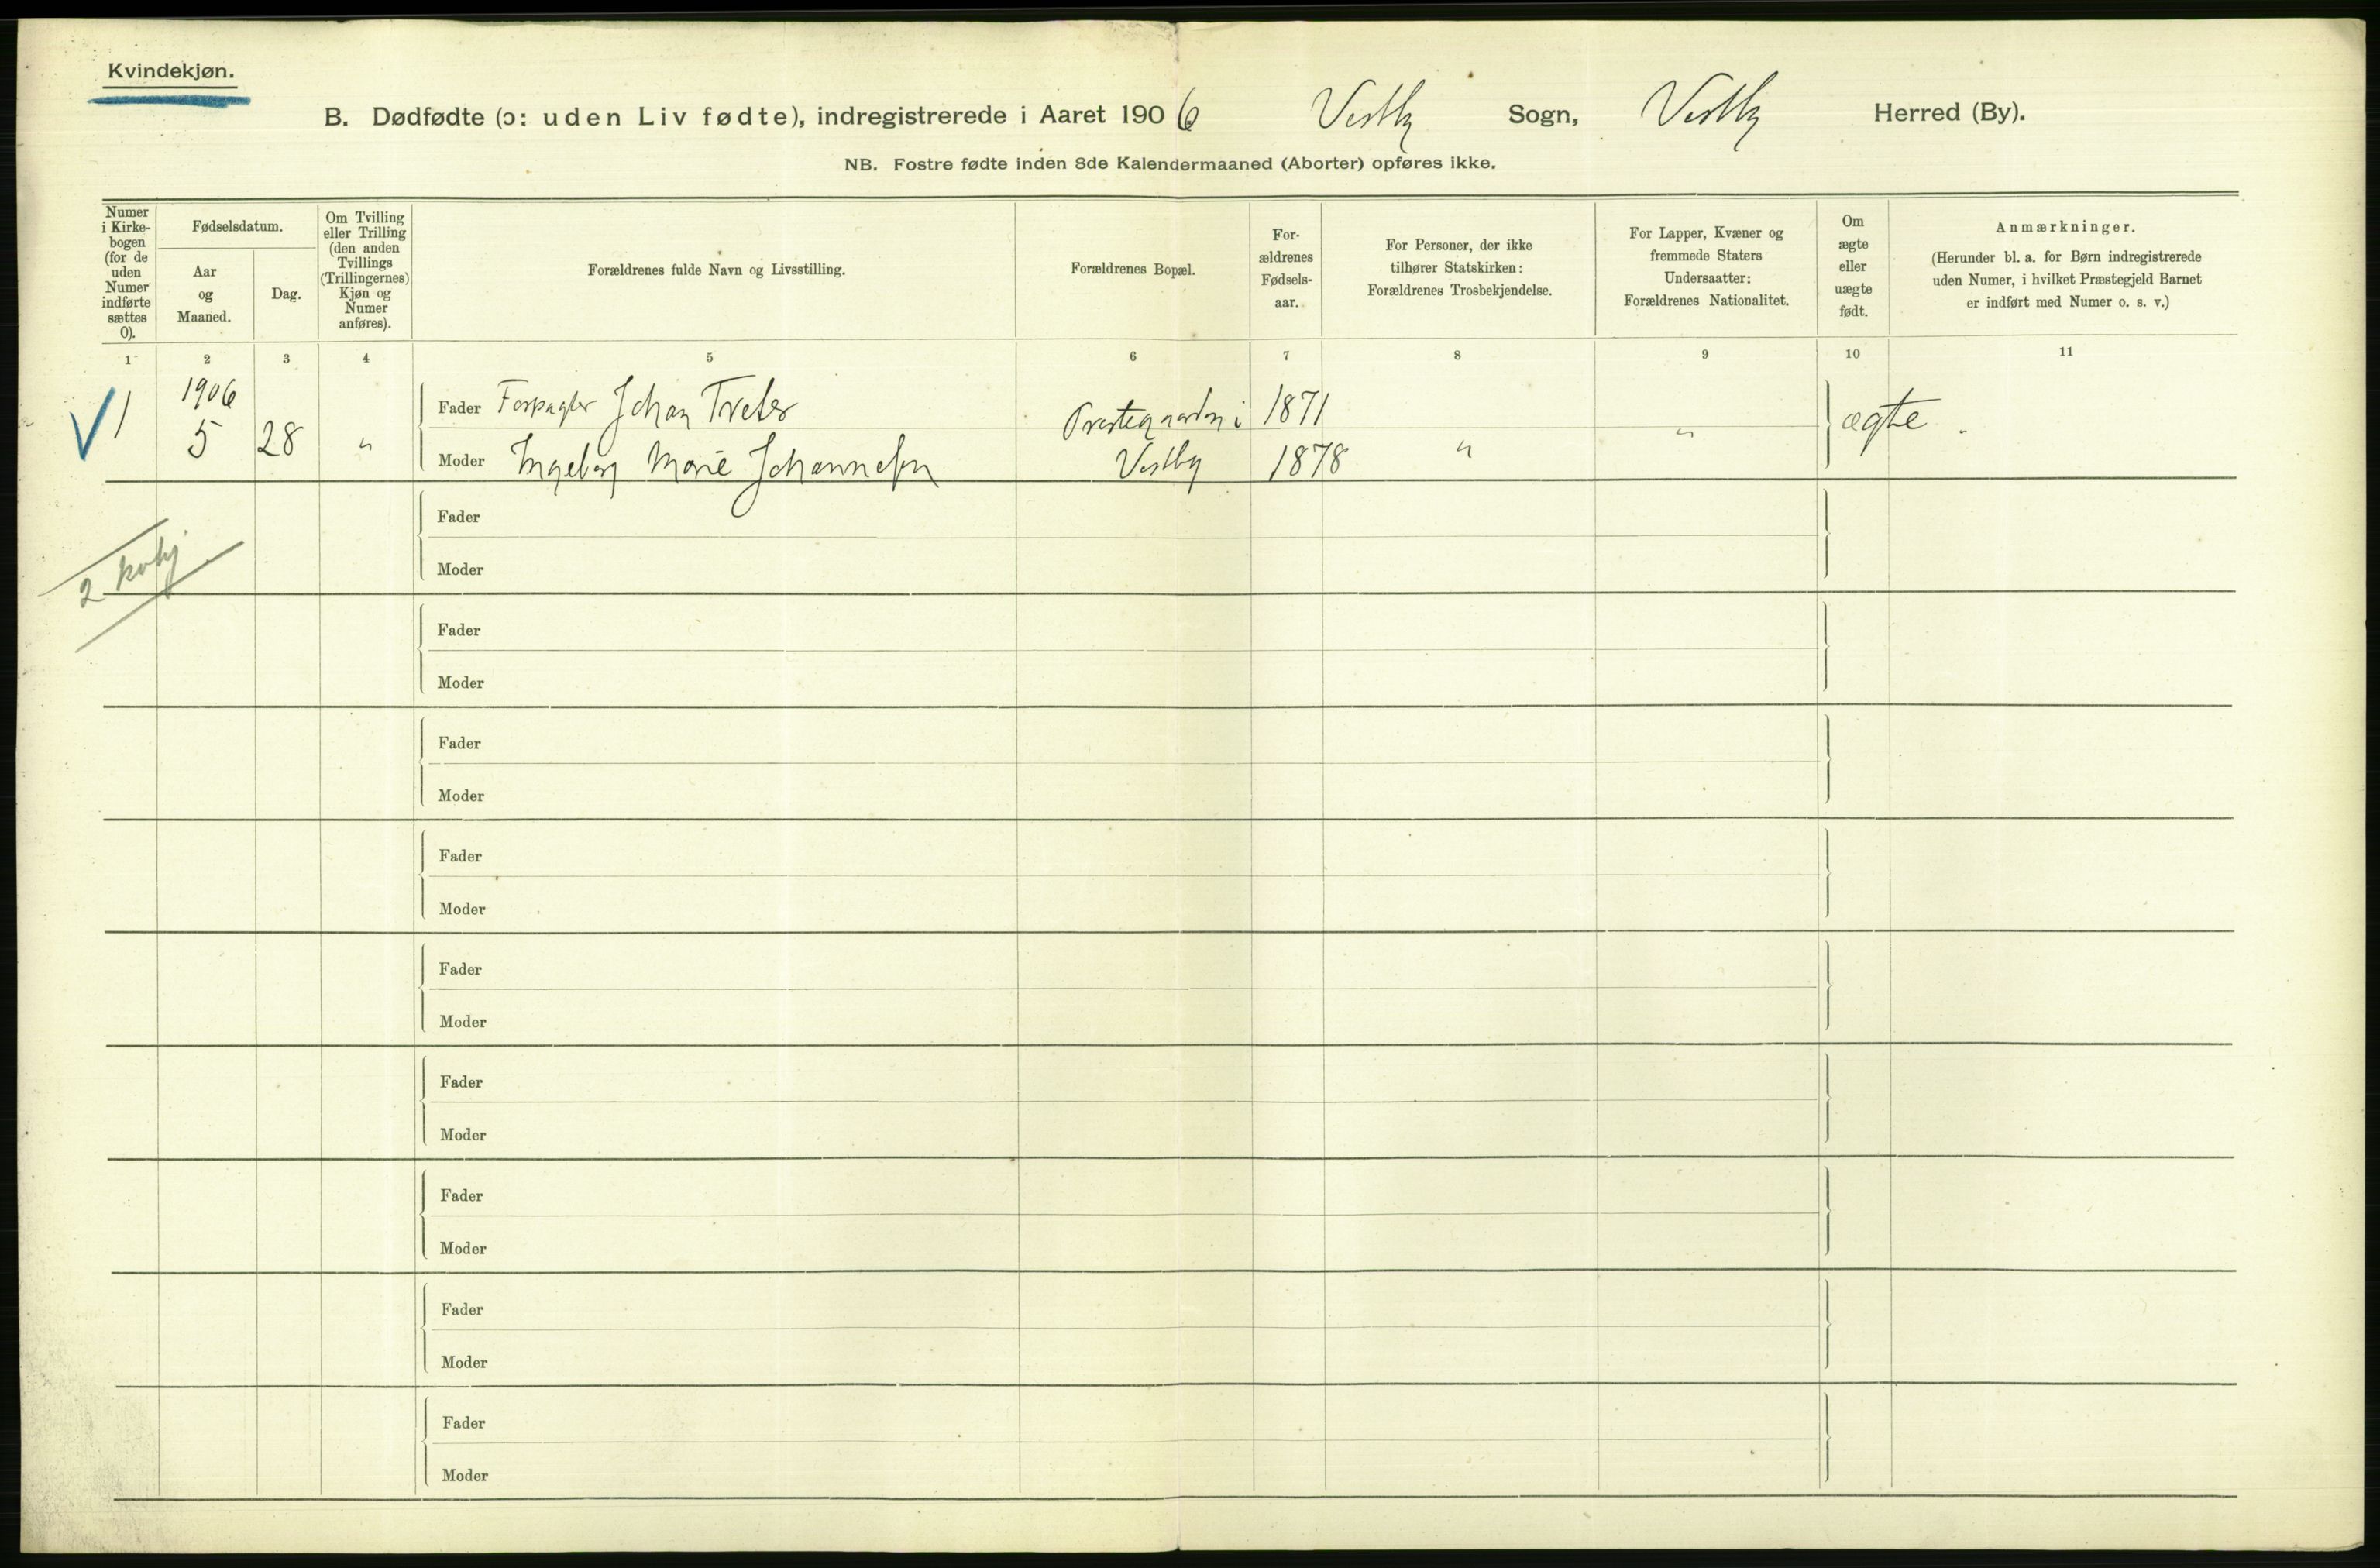 Kvindekjøn.
B. Dødfødte (ɔ: uden Liv fødte), indregistrerede i Aaret 1906 Vestby Sogn, Vestby Herred (By).
NB. Fostre fødte inden 8de Kalendermaaned (Aborter) opføres ikke.
Numer i Kirke-bogen (for de uden Numer indførte sættes 0).
Fødselsdatum.
Aar og Maaned.
Dag.
Om Tvilling eller Trilling (den anden Tvillings (Trillingernes) Kjøn og Numer anføres).
Forældrenes fulde Navn og Livsstilling.
Forældrenes Bopæl.
For-ældrenes Fødsels-aar.
For Personer, der ikke tilhører Statskirken: Forældrenes Trosbekjendelse.
For Lapper, Kvæner og fremmede Staters Undersaatter: Forældrenes Nationalitet.
Om ægte eller uægte født.
Anmærkninger.
(Herunder bl. a. for Børn indregistrerede uden Numer, i hvilket Præstegjeld Barnet er indført med Numer o. s. v.)
1 2 3 4 5 6 7 8 9 10 11
1906
1 5 28 "
Fader Forpagter Johan Tveter Prestegaarden i 1871
Moder Ingeborg Marie Johannesen Vestby 1878 " " ægte .
Fader
2
Moder
Fader
Moder
Fader
Moder
Fader
Moder
Fader
Moder
Fader
Moder
Fader
Moder
Fader
Moder
Fader
Moder